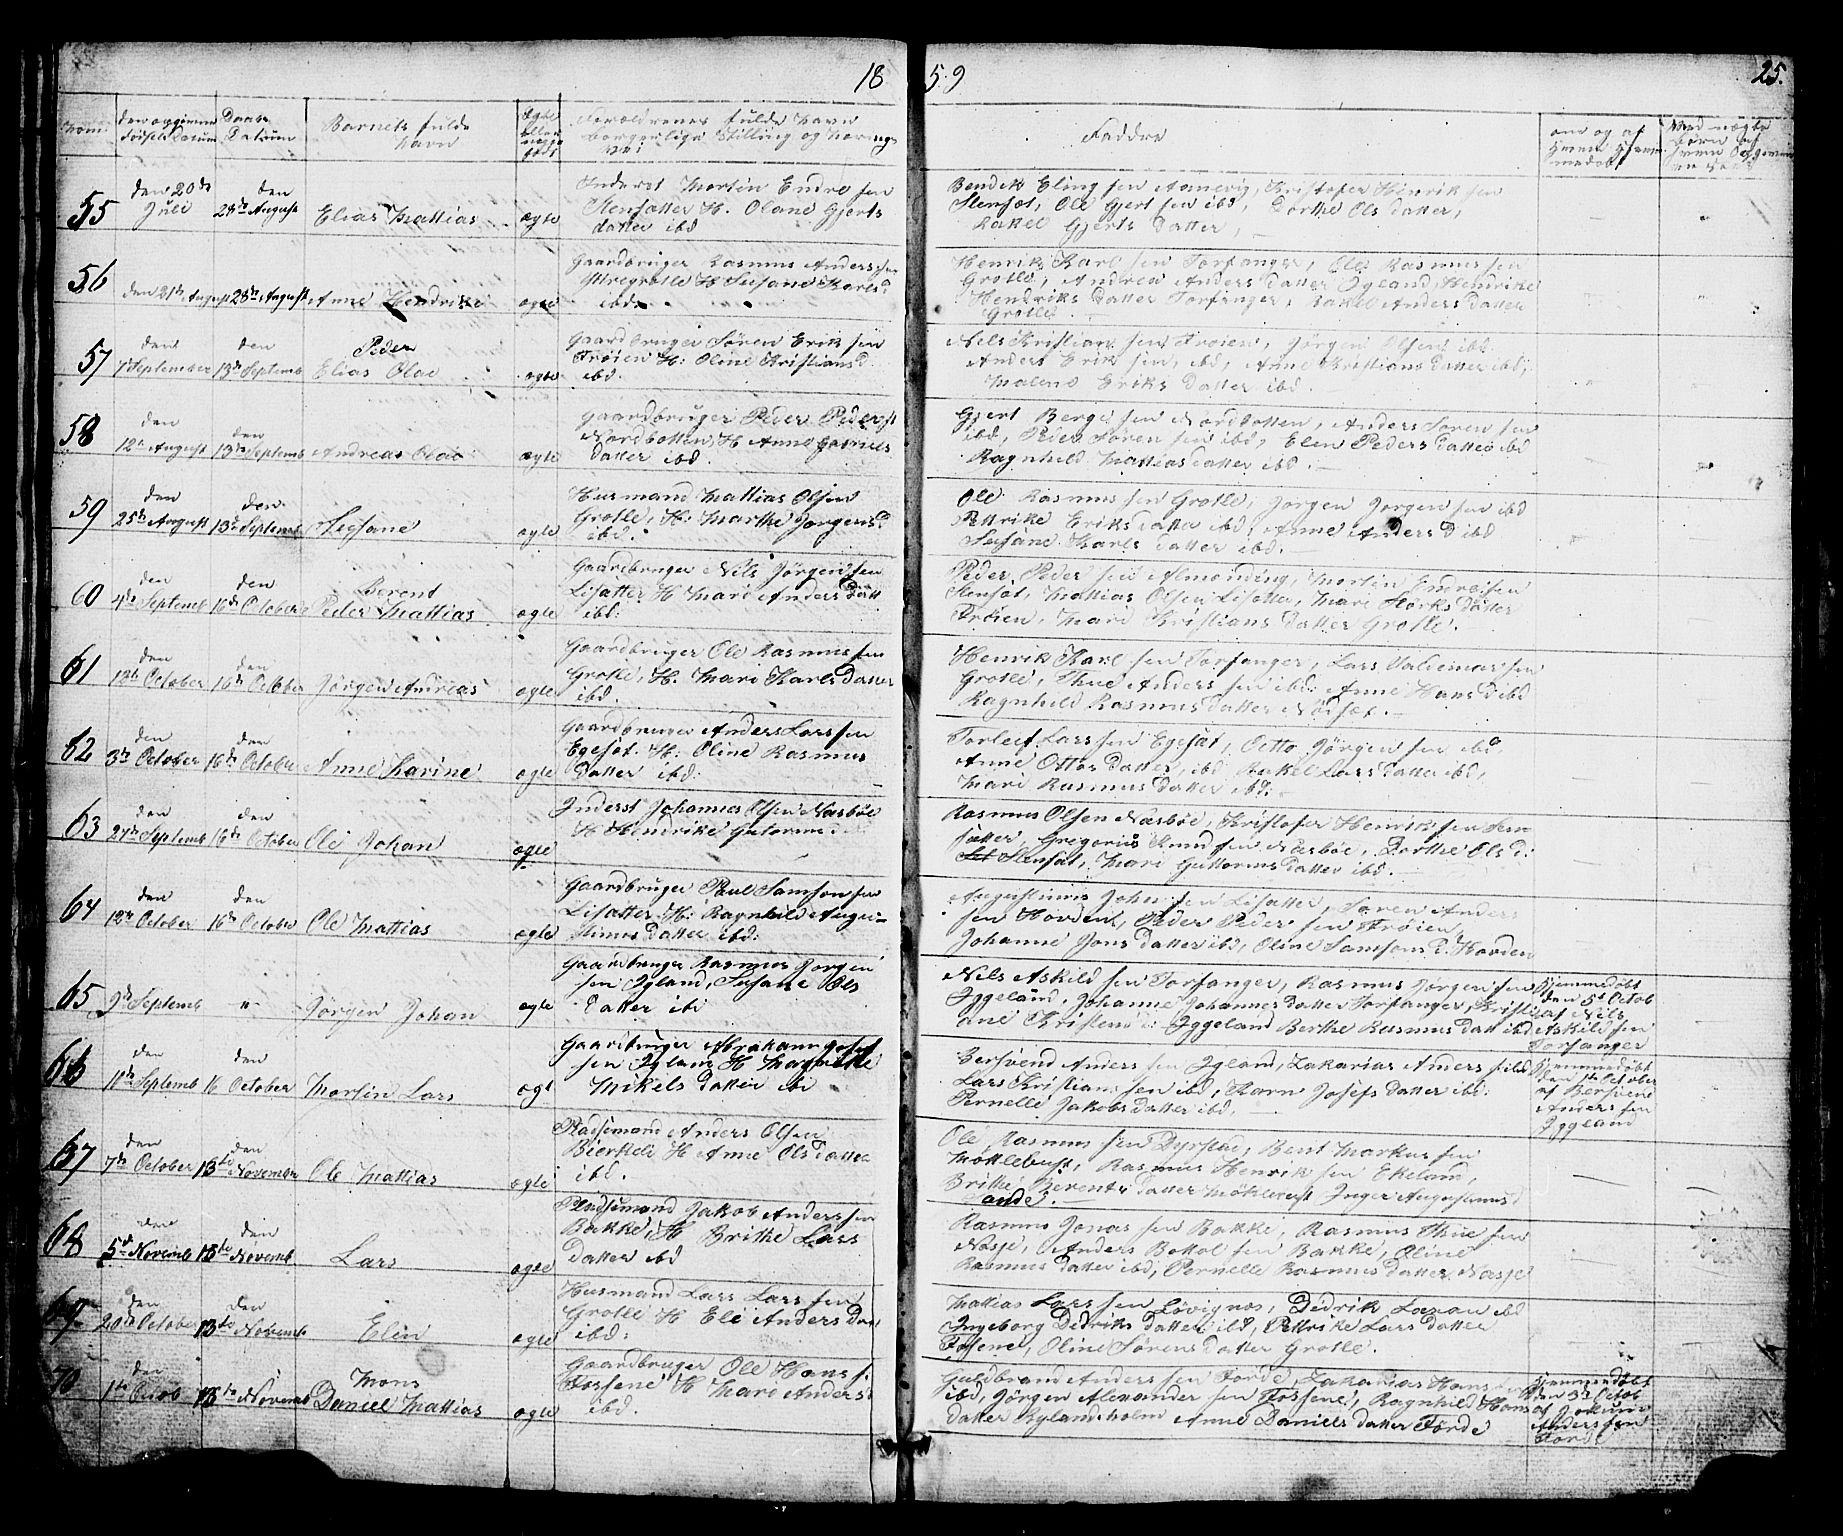 18 59 25.
Nom: den opgivne fødsels Datum Daabs Datum Barnets fulde Navn Ægte eller uægte født Foreldrenes fulde Navn borgerlige Stilling og Nærings vei
Faddre
om og af Hvem Hjemmedøbt
55 den 20de Juli den 28de August Elias Mattias ægte
Inderst Martin Endre sen
Stensætter H. Oland Gjerts
datter ibd
Bendik Eling sen Annevig, Kristofer Henrik sen
Stensæt, Ole Gjert sen ibd, Dorthe Ols datter,
Rakel Gjerts datter,
56 den 21de August 28de August Anne Hendrike ægte
Gaardbruger Rasmus Anders sen
Yttregrotle H Susane Karls d
ibd.
Henrik Karl sen Torfanger, Ole Rasmus sen
Grotle, Andrea Anders datter Igland, Henrike
Hendriks datter Torfanger, Rakel Anders datter
Grotle.
57 den 7 September den 13de Septemb Peder
Elias Olae ægte
Gaardbruger Søren Erik sen
Frøien H: Oline Kristians d.
ibd.
Nils Kristian sen Frøien, Jørgen Olsen ibd.
Anders Erik sen, ibd, Anne Kristians datter ibd,
Malene Eriks datter ibd.
58 den 12te August den 13de Septemb Andreas Olae ægte
Gaardbruger Peder Peders
Nordbotten, H Anne Gabriels
datter ibd.
Gjert Berge sen Nordbotten, Anders Søren sen
ibd, Peder Søren sen ibd, Elen Peders datter ibd
Ragnhild Mattias datter ibd.
59 den 25de August den 13de Septemb Susane ægte
Husmand Mattias Olsen
Grotle, H: Marthe Jørgens d.
ibd.
Ole Rasmus sen Grotle, Jørgen Jørgen sen ibd
Pettrike Eriks datter ibd, Anne Anders d ibd
Susane Karls datter ibd.
60 den 4de Septemb den 16de October Berent
Peder Mattias ægte
Gaardbruger Nils Jørgen sen
Lisætter H Mari Anders Datt
ibd:
Peder Peder sen Almending, Martin Endre sen
Stensæt, Mattias Olsen Lisætter, Mari Størks datter
Frøien, Mari Kristians datter Grotle.
61 den 12te October den 16de October Jørgen Andreas ægte
Gaardbruger Ole Rasmus sen
Grotle, H. Mari Karls datter
ibd.
Henrik Karl sen Torfanger, Lars Valdemar sen
Grotle, Thue Anders sen ibd: Anne Hans d ibd
Ragnhild Rasmus datter Nødset.
62 den 3de October den 16de October Anne Karine ægte
Gaardbruger Anders Lars sen
Egesæt. H: Oline Rasmus
datter ibd:
Torleif Lars sen Egesæt, Otto Jørgen sen ibd,
Anne Ottos datter, ibd Rakel Lars datter ibd,
Mari Rasmus datter ibd.
63 den 27de Septemb den 16de October Ole Johan ægte
Inderst Johannes Olsen Næsbøe
H Hendrike Gutorms d
Rasmus Olsen Næsbøe, Kristofer Henrik sen Sten
sætter, Gregorius Knud sen Næsbøe, Dorthe Ols d:
Stensæt, Mari Guttorms datter ibd.
64 den 12te October den 16de October Ole Mattias ægte
Gaardbruger Paul Samson sen
Lisætter H: Ragnhild Augu-
stinus datter ibd:
Augustinus John sen Lisætter, Søren Anders
sen Hovden, Peder Peder sen Frøien,
Johanne Jons datter ibd, Oline Samsons d. Hovden
65 9de Septemb " Jørgen Johan ægte
Gaardbruger Rasmus Jørgen
sen Igland, Susane Ols
datter ibd
Nils Askild sen Torfanger, Rasmus Jørgen sen
Iggeland, Johanne Johannes datter Torfanger, Kristi
ane Kristens d: Iggeland Berthe Rasmus datt ibd
Hjemmedøbt
den 5te Octob
af Nils
Askild sen
Torfanger
66 den 11de Septemb den 16 October Martin Lars ægt
Gaardbruger Abraham Josef
sen Igland H Magrethe
Mikels datter ibd
Bersvend Anders sen Igland, Zakarias Anders s ibd
Lars Kristians sen ibd, Karn Josefs datter ibd:
Pernelle Jakobs datter ibd,
Hjemmedøbt
den 1te October
af Bersvend
Anders sen
Iggeland
67 den 7de October den 13de November Ole Mattias ægte
Pladsmand Anders Olsen
Bierkeli H Anne Ols datter
ibd.
Ole Rasmus sen Dyrstad, Bent Markus sen
Møklebust, Rasmus Henrik sen Ekeland,
Brithe Berents datter Møklebust Inger Augustinus d
Sande.
68 den 5te Novemb den 13de Novemb Lars ægte
Pladsmand Jakob Anders sen
Bakke, H Brithe Lars
datter ibd
Rasmus Jonas sen Bakke, Rasmus Thue sen
Nøsje, Anders Bottol sen Bakke, Oline
Rasmus datter ibd, Pernelle Rasmus datter, Nøsje
69 den 20de October den 13de Novemb Elen ægte
Husmand Lars Lars sen
Grotle H Eli Anders Dat
ibd:
Mattias Lars sen Løvignes, Didrik Larsen ibd
Ingeborg Didriks datter ibd, Pettrike Lars datter
Fossene, Oline Sørens datter Grotle.
70 den 1te Octob 13de Novemb Mons
Daniel Mattias ægte
Gaardbruger Ole Hans s:
Fossene H Mari Anders
ibd.
Guldbrand Anders sen Førde, Zakarias Hans sen
ibd, Jørgen Alexander sen Fossene, Ragnhild Hans
datter Rylandsholm Anne Daniels datter Førde
Hjemmedøbt
den 3de Octob
af Jokum
Anders sen
Førde